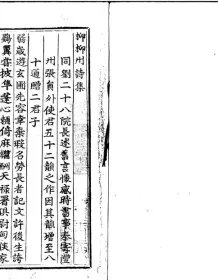 柳柳州詩集
同劉二十八院長述舊言懷感時書事奉寄澧
州張員外使君五十二韻之作因其韻增至八
十通贈二君子
弱歲遊玄圃先容幸棄瑕名勞長者記文許後生誇
鷃翼嘗披隼蓬心類倚麻繼酬天祿署俱尉甸侯家